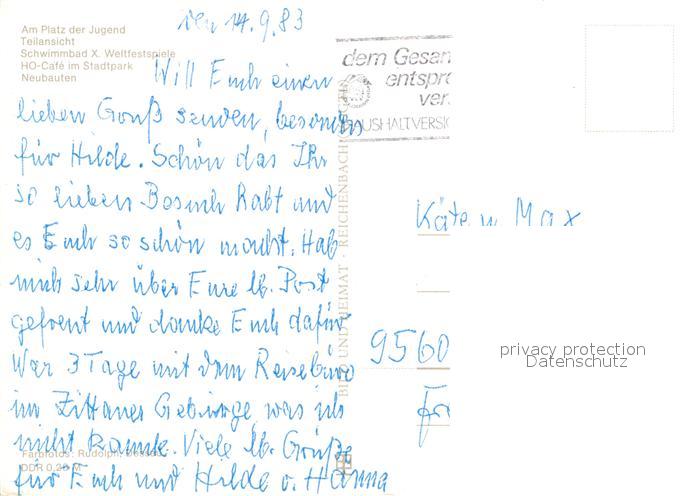 Am Platz der Jugend
Teilansicht
Schwimmbad X. Weltfestspiele
HO-Café im Stadtpark
Neubauten
den 14.9.83
dem Gesam
entspre
ver
HAUSHALTVERSIC
Will Euch einen
lieben Gruß senden, besonders
für Hilde. Schön das Ihr
so lieben Besuch habt und
es Euch so schön macht. Hab
mich sehr über Eure lb. Post
gefreut und danke Euch dafür
War 3 Tage mit dem Reisebüro
im Zittauer Gebirge, was ich
nicht kannte. Viele lb. Grüße
für Euch und Hilde v. Hanna
BILD UND HEIMAT · REICHENBACH
Käte u. Max
9560
Fr
privacy protection
Datenschutz
Farbfotos: Rudolph, Dessau
DDR 0,20 M